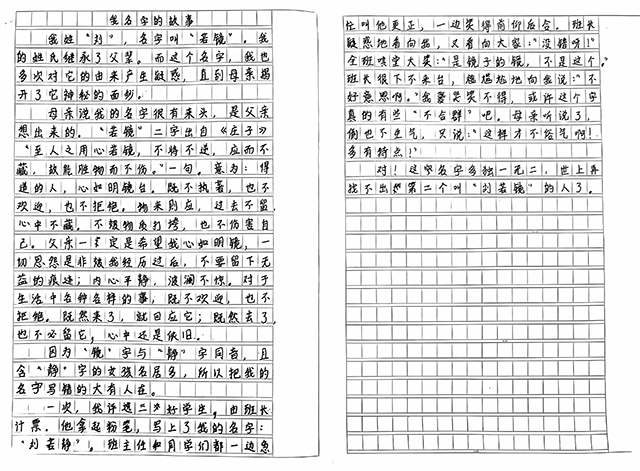 我名字的故事
我姓“刘”，名字叫“若镜”。我
的姓氏继承了父辈。而这个名字，我也
多次对它的由来产生疑惑，直到母亲揭
开了它神秘的面纱。
母亲说我的名字很有来头，是父亲
想出来的。“若镜”二字出自《庄子》
“至人之用心若镜，不将不逆，应而不
藏，故能胜物而不伤。”一句。意为：得
道的人，心如明镜台。既不执著，也不
欢迎，也不拒绝。物来则应，过去不留，
心中不藏。不被物质打垮，也不伤害自
己。父亲一定是希望我心如明镜，一
切恩怨是非被我经历过后，不要留下无
益的痕迹；内心平静，波澜不惊。对于
生活中各种各样的事，既不欢迎，也不
拒绝。既然来了，就回应它；既然去了，
也不必留它，心中还是依旧。
因为“镜”字与“静”字同音，且
含“静”字的女孩名居多，所以把我的
名字写错的大有人在。
一次，我评选三好学生。由班长
计票。他拿起粉笔，写上了我的名字：
“刘若静”。班主任和同学们都一边急
忙叫他更正，一边笑得前仰后合。班长
疑惑地看向我，又看向大家：“没错呀！”
全班哄堂大笑：“是镜子的镜，不是这个。”
班长很下不来台，尴尬地向我说：“不
好意思啊。”我哭笑不得，或许这个字
真的有些“不合群”吧。母亲听说了，
倒也不生气，又说：“这样才不俗气啊！
多有特点！”
对！这名字多独一无二，世上再
找不出第二个叫“刘若镜”的人了。